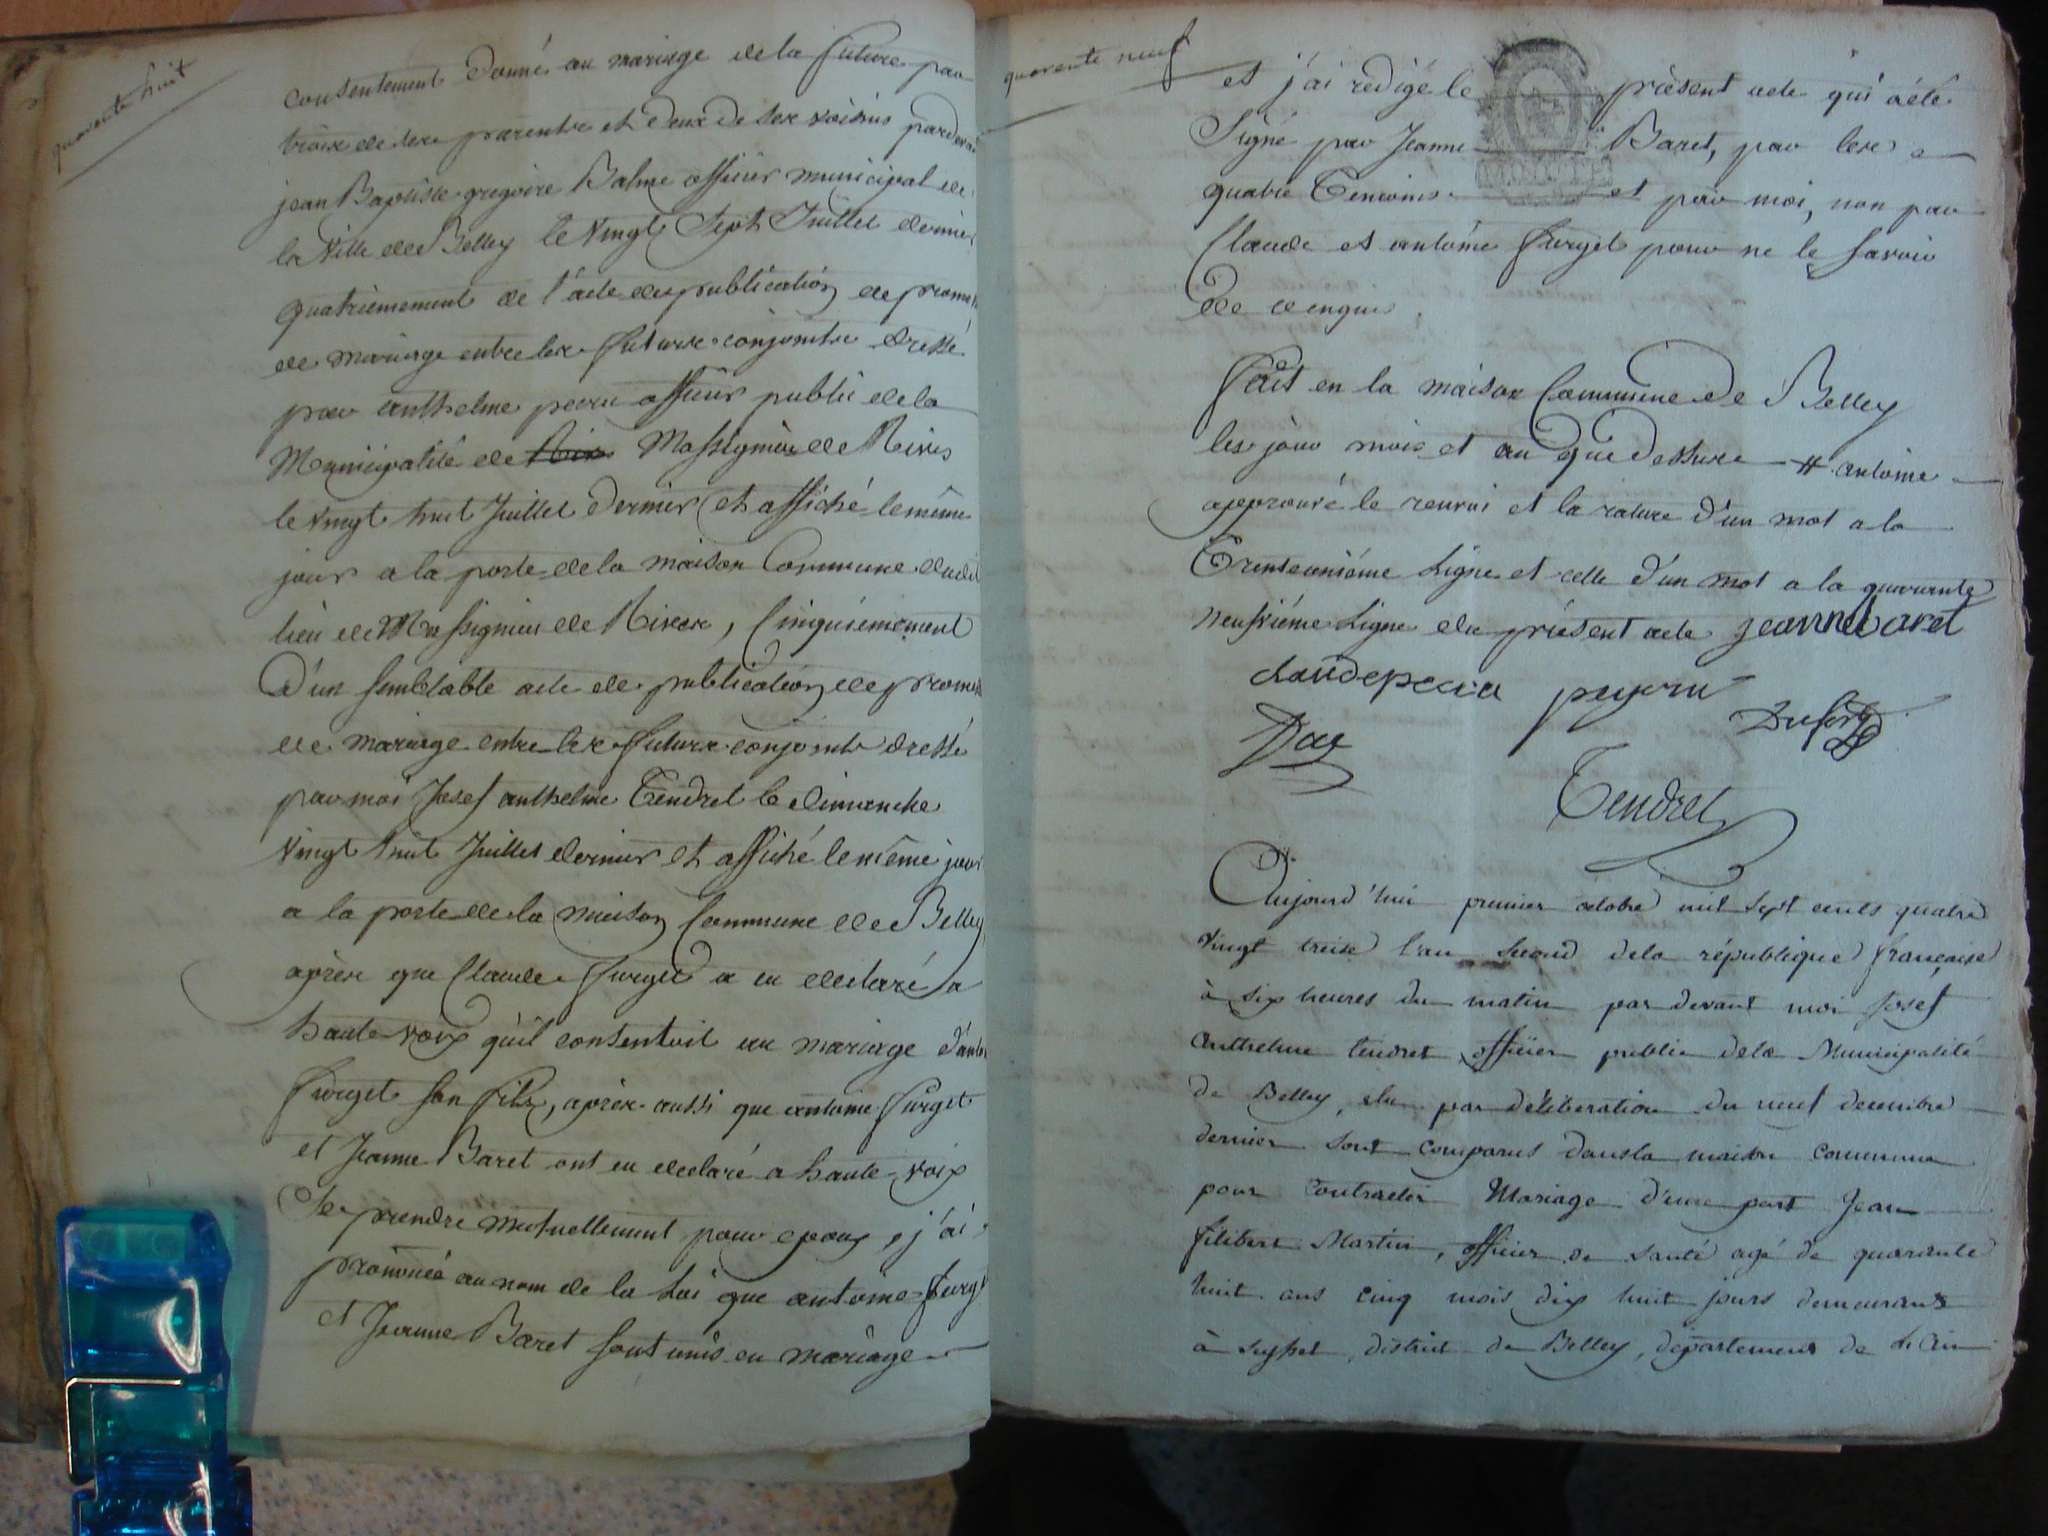 quarante huit
consentement donné au mariage de la future par
trois de ses parents et deux de ses voisins pardevant
jean Baptiste gregoire Balme officier municipal de
la Ville de Belley le vingt Sept Juillet dernier
quatriemement de l'acte de publication de prome
de mariage entre les futurs conjoints dressé
par anthelme officier public de la
Municipalité de Massignieu de Rives
le vingt huit Juillet dernier et affiché le même
jour a la porte de la maison Commune dudit
lieu de Massignieu de Rives, Cinquiemement
D'un semblable acte de publication de prome
de mariage entre les futurs conjoints dressé
par moi Josef anthelme Tendret le dimanche
vingt huit Juillet dernier et affiché le même jour
a la porte de la maison Commune de Belley
après que Claude furget a eu declaré a
haute voix qu'il consentoit au mariage d'anto
furget son fils, après aussi que antoine furget
et Jeanne Baret ont eu declaré a haute voix
Se prendre mutuellement pour epoux, j'ai
prononcé au nom de la Loi que antoine furg
et Jeanne Baret sont unis en mariage
quarante neuf
et j'ai redigé le présent acte qui a été
Signé par Jeanne Baret, par les
quatre Temoins et par moi, non par
Claude et antoine furget pour ne le savoir
de ce enquis.
Fait en la maison Commune de Belley
les jour mois et an que dessus # antoine
approuvé le renvoi et la rature d'un mot a la
Trenteunième Ligne et celle d'un mot a la quarante
neufvième Ligne du présent acte jeanne baret
Tendret
Aujourd'hui premier octobre mil sept cents quatre
vingt treise l'an second de la république française
à six heures du matin par devant moi Josef
Anthelme tendret officier public de la Municipalité
de Belley, elu par déliberation du neuf decembre
dernier sont comparus dans la maison commune
pour contracter Mariage d'une part Jean
filibert Martin, officier de santé agé de quarante
huit ans cinq mois dix huit jours demeurant
à Seyssel, district de Belley, departement de L'Ain